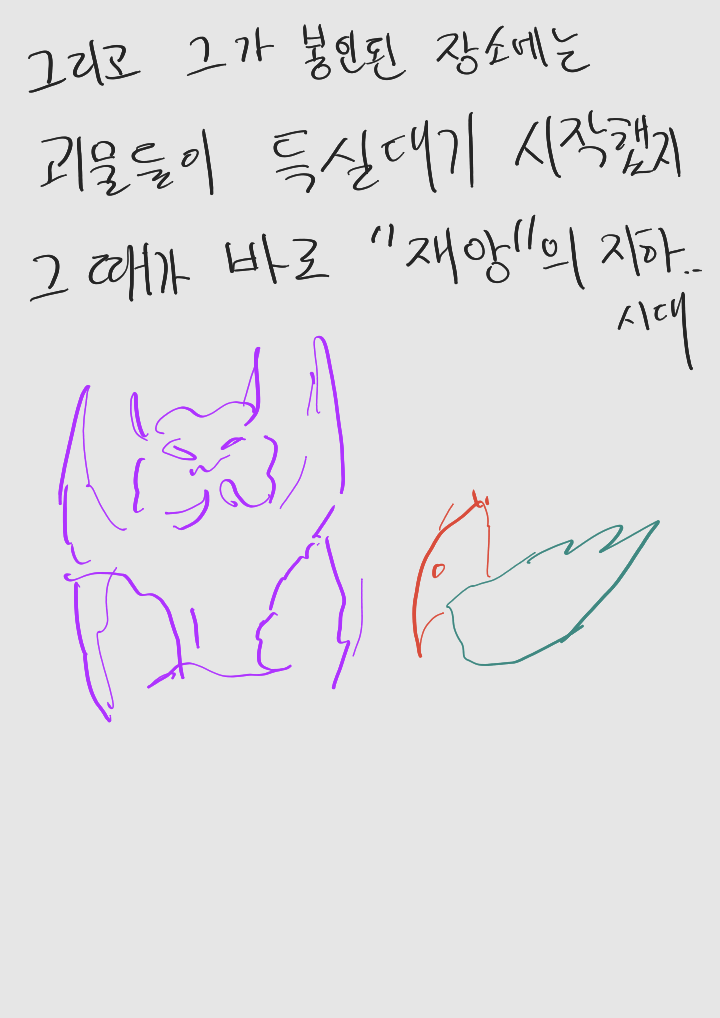 그리고 그가 봉인된 장소에는
괴물들이 득실대기 시작했지
그 때가 바로 "재앙"의 지하..
시대